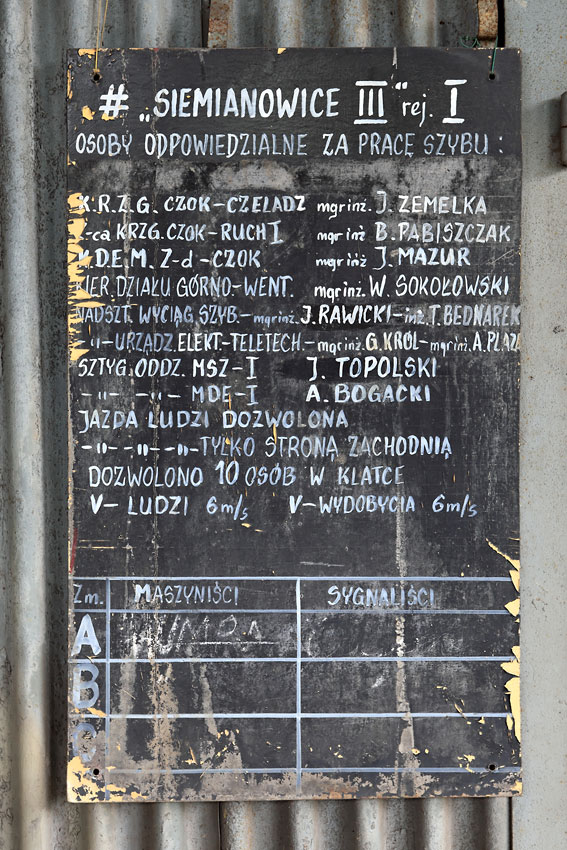 # „SIEMIANOWICE III" rej. I
OSOBY ODPOWIEDZIALNE ZA PRACĘ SZYBU:
K.R.Z.G. CZOK-CZELADZ mgr inż. J. ZEMELKA
Z-ca KRZG. CZOK-RUCH I mgr inż B. PABISZCZAK
K.D.E.M. Z-d-CZOK mgr inż J. MAZUR
KIER. DZIAŁU GÓRNO-WENT. mgr inż. W. SOKOŁOWSKI
NADSZT. WYCIĄG SZYB.-mgr inż. J. RAWICKI-inż. T. BEDNAREK
-"-URZĄDZ. ELEKT-TELETECH-mgr inż. G. KRÓL-mgr inż. A. PLAZA
SZTYG. ODDZ. MSZ-I J. TOPOLSKI
-"- -"- MDE-I A. BOGACKI
JAZDA LUDZI DOZWOLONA
-"-"-"-TYLKO STRONĄ ZACHODNIĄ
DOZWOLONO 10 OSÓB W KLATCE
V-LUDZI 6m/s V-WYDOBYCIA 6m/s
Zm. MASZYNIŚCI SYGNALIŚCI
A
B
C